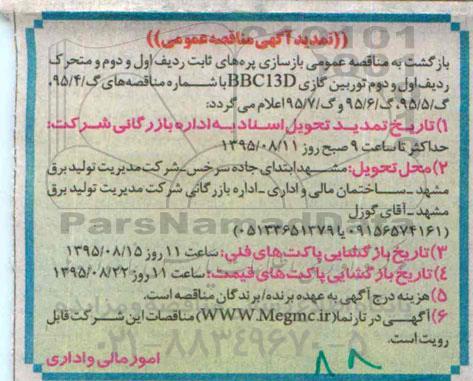 ((تمدید آگهی مناقصه عمومی))
بازگشت به مناقصه عمومی بازسازی پره‌های ثابت ردیف اول و دوم و متحرک
ردیف اول و دوم توربین گازی BBC13D با شماره مناقصه‌های گ/۹۵/۴،
گ/۹۵/۵، گ/۹۵/۶ و گ/۹۵/۷ اعلام می گردد:
۱) تاریخ تمدید تحویل اسناد به اداره بازرگانی شرکت:
حداکثر تا ساعت ۹ صبح روز ۱۳۹۵/۰۸/۱۱
۲) محل تحویل: مشهد ابتدای جاده سرخس - شرکت مدیریت تولید برق
مشهد - ساختمان مالی و اداری - اداره بازرگانی شرکت مدیریت تولید برق
مشهد - آقای گوزل
(۰۹۱۵۶۵۷۴۱۶۱ یا ۰۵۱۳۳۶۵۱۲۷۹)
۳) تاریخ بازگشایی پاکت های فنی: ساعت ۱۱ روز ۱۳۹۵/۰۸/۱۵
۴) تاریخ بازگشایی پاکت های قیمت: ساعت ۱۱ روز ۱۳۹۵/۰۸/۲۲
۵) هزینه درج آگهی به عهده برنده/برندگان مناقصه است.
۶) آگهی در تارنما (WWW.Megmc.ir) مناقصات این شرکت قابل
رویت است.
امور مالی و اداری
۸۸
ParsNamadData
۰۲۱-۸۸۳۴۹۶۷۰-۵